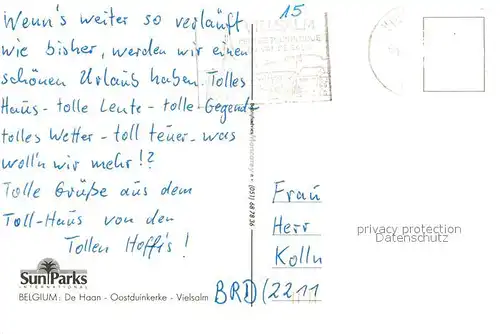 Wenn's weiter so verläuft
wie bisher, werden wir einen
schönen Urlaub haben. Tolles
Haus - tolle Leute - tolle Gegend
tolles Wetter - toll teuer - was
woll'n wir mehr!?
Tolle Grüße aus dem
Toll-Haus von den
Tollen Hoffis!
SunParks
INTERNATIONAL
BELGIUM: De Haan - Oostduinkerke - Vielsalm
15
VIELSALM
(051) 68 78 36
Frau
Herr
Kolln
BRD (2211
privacy protection
Datenschutz